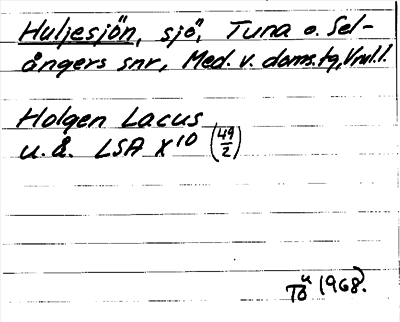 Huljesjön, sjö, Tuna o. Sel-
ångers snr, Med. v. doms.tg, Vnl.l.
Holgen Lacus
u.å. LSA X10 (49/2)
Tö 1968.